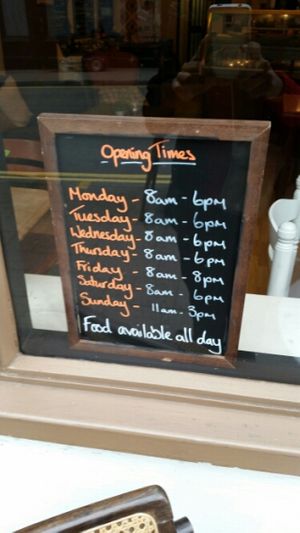 Opening Times
Monday - 8am - 6pm
Tuesday - 8am - 6pm
Wednesday - 8am - 6pm
Thursday - 8am - 6pm
Friday - 8am - 8pm
Saturday - 8am - 6pm
Sunday - 11am - 3pm
Food available all day